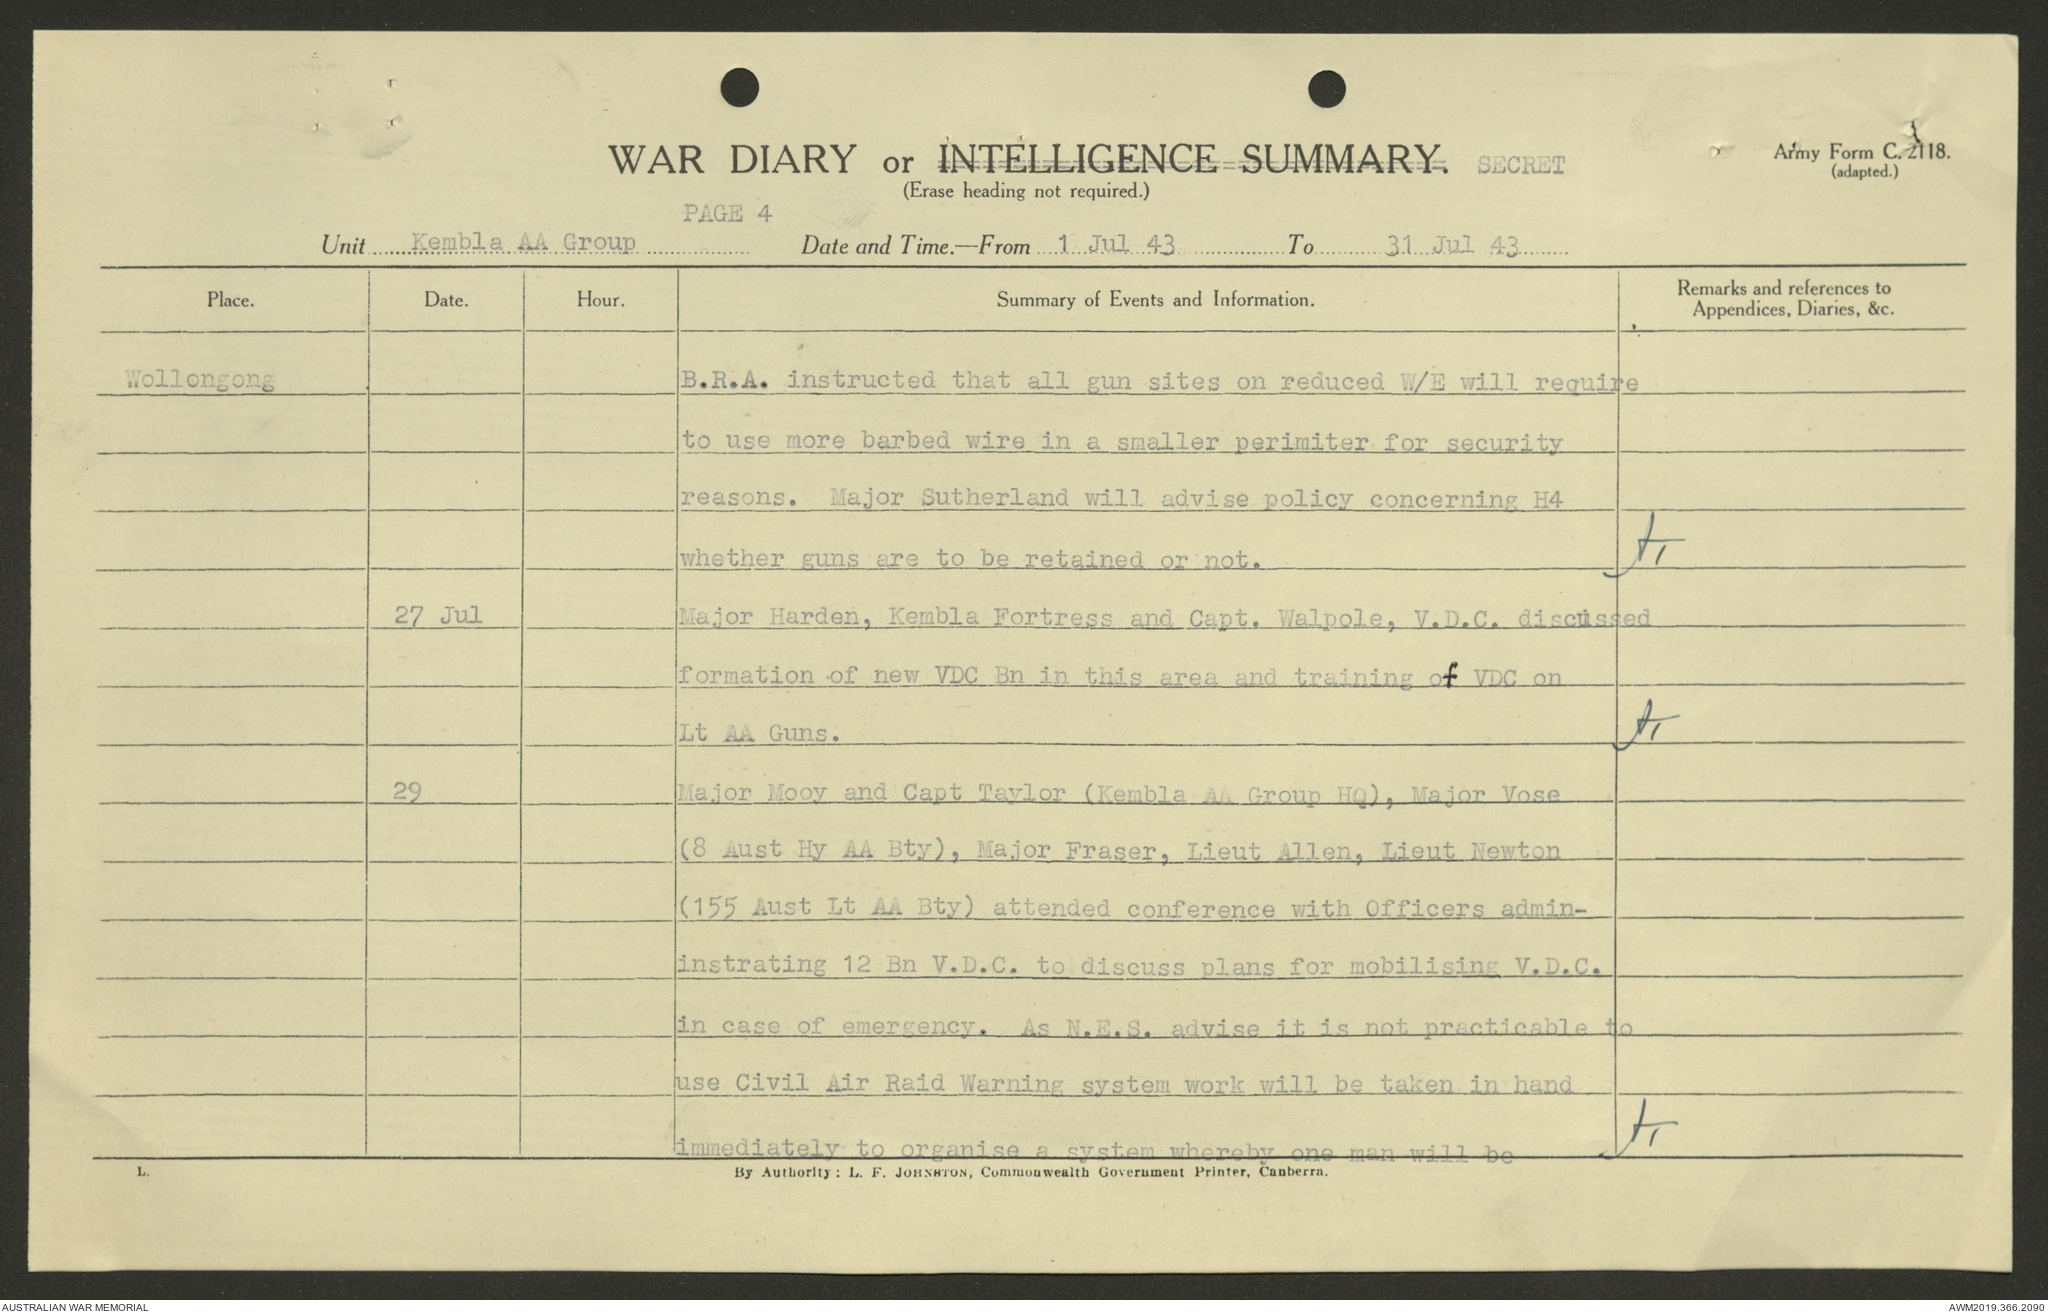 WAR DIARY or INTELLIGENCE SUMMARY. SECRET
Army Form C. 2118.
(adapted.)
(Erase heading not required.)
PAGE 4
Unit Kembla AA Group Date and Time.—From 1 Jul 43 To 31 Jul 43
Place. Date. Hour. Summary of Events and Information. Remarks and references to
Appendices, Diaries, &c.
Wollongong B.R.A. instructed that all gun sites on reduced W/E will require
to use more barbed wire in a smaller perimiter for security
reasons. Major Sutherland will advise policy concerning H4
whether guns are to be retained or not.
27 Jul Major Harden, Kembla Fortress and Capt. Walpole, V.D.C. discussed
formation of new VDC Bn in this area and training of VDC on
Lt AA Guns.
29 Major Mooy and Capt Taylor (Kembla AA Group HQ), Major Vose
(8 Aust Hy AA Bty), Major Fraser, Lieut Allen, Lieut Newton
(155 Aust Lt AA Bty) attended conference with Officers admin-
instrating 12 Bn V.D.C. to discuss plans for mobilising V.D.C.
in case of emergency. As N.E.S. advise it is not practicable to
use Civil Air Raid Warning system work will be taken in hand
immediately to organise a system whereby one man will be
L. By Authority: L. F. JOHNSTON, Commonwealth Government Printer, Canberra.
AUSTRALIAN WAR MEMORIAL AWM2019.366.2090